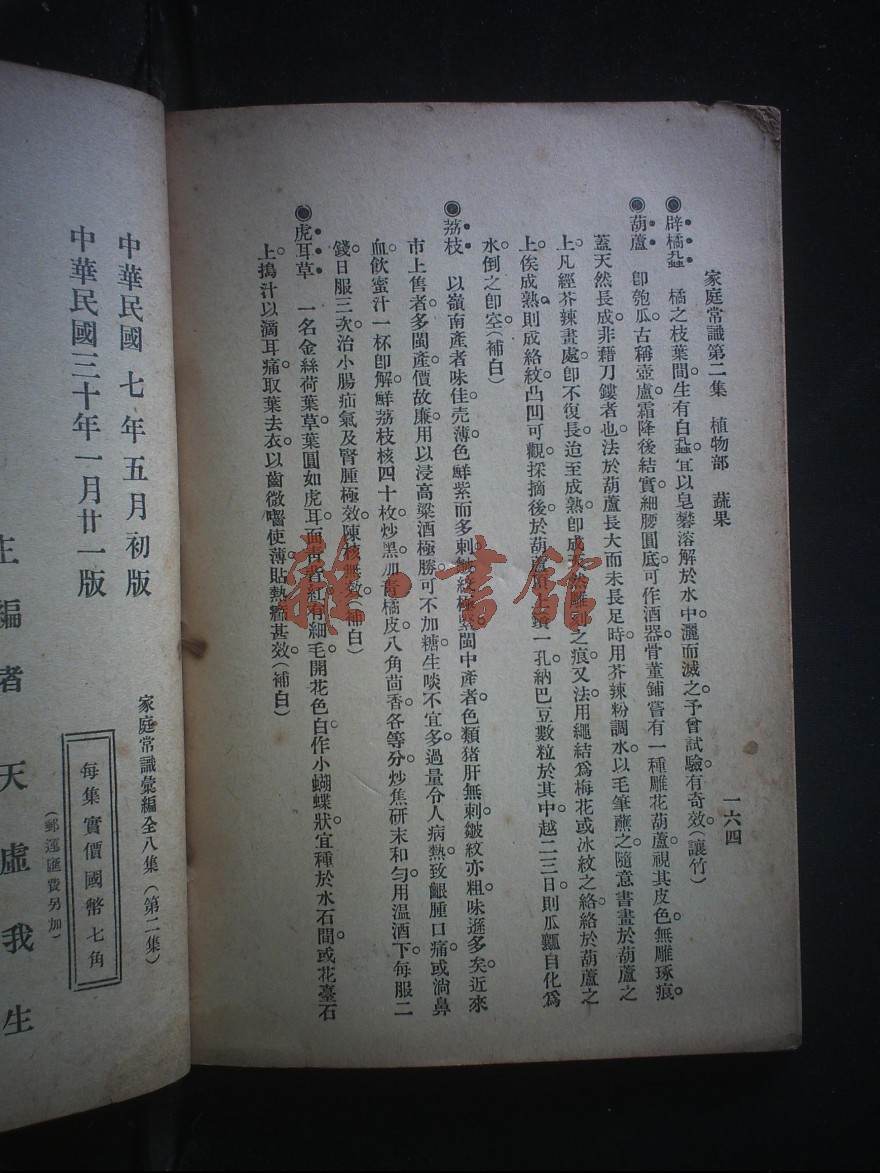 家庭常識第二集　植物部　蔬果
一六四
◉辟橘蝨　橘之枝葉間生有白蝨宜以皂礬溶解於水中灑而滅之。予曾試驗有奇效。(讓竹)
◉葫蘆　卽匏瓜。古稱壺盧。霜降後結實。細腰圓底。可作酒器。骨董鋪嘗有一種雕花葫蘆。視其皮色無雕琢痕。
蓋天然長成。非藉刀鏤者也。法於葫蘆長大而未長足時。用芥辣粉調水。以毛筆蘸之。隨意書畫於葫蘆之
上。凡經芥辣畫處。卽不復長。迨至成熟。卽成天然雕刻之痕。又法用繩結爲梅花或冰紋之絡。絡於葫蘆之
上。俟成熟則成絡紋。凸凹可觀。採摘後於葫蘆頂上鑽一孔。納巴豆數粒於其中。越二三日則瓜瓤自化爲
水。倒之卽空。(補白)
◉荔枝　以嶺南產者味佳。壳薄色鮮紫而多刺。皺紋極堅。閩中產者色類猪肝無刺。皺紋亦粗。味遜多矣。近來
市上售者多閩產。價故廉。用以浸高粱酒極勝。可不加糖。生啖不宜多。過量令人病熱。致齦腫口痛或淌鼻
血。飲蜜汁一杯卽解。鮮荔枝核四十枚。炒黑。加青橘皮八角茴香各等分。炒焦研末和勻。用温酒下。每服二
錢。日服三次。治小腸疝氣及腎腫極效。陳核無效。(補白)
◉虎耳草　一名金絲荷葉草。葉圓如虎耳。面青背紅。有細毛。開花色白作小蝴蝶狀。宜種於水石間或花臺石
上。搗汁以滴耳痛。取葉去衣。以齒微嚼使薄。貼熱癤甚效。(補白)
中華民國七年五月初版
中華民國三十年一月廿一版
家庭常識彙編全八集(第二集)
每集實價國幣七角
(郵運匯費另加)
主編者天虛我生
雜·書館